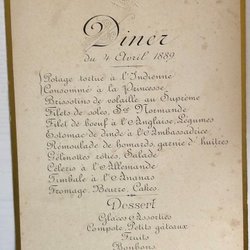 Diner
du 4 Avril 1889
Potage tortue à l'Indienne
Consommé à la Princesse
Brissotins de volaille au Suprême
Filets de soles, Ste Normande
Filet de bœuf à l'Anglaise, Légumes
Estomac de dinde à l'Ambassadrice
Rémoulade de homards garnie d'huîtres
Gélinottes rôties, Salade
Céleris à l'Allemande
Timbale à l'Ananas
Fromage, Beurre, Cakes
Dessert
Glaces Assorties
Compote, Petits gâteaux
Fruits
Bonbons